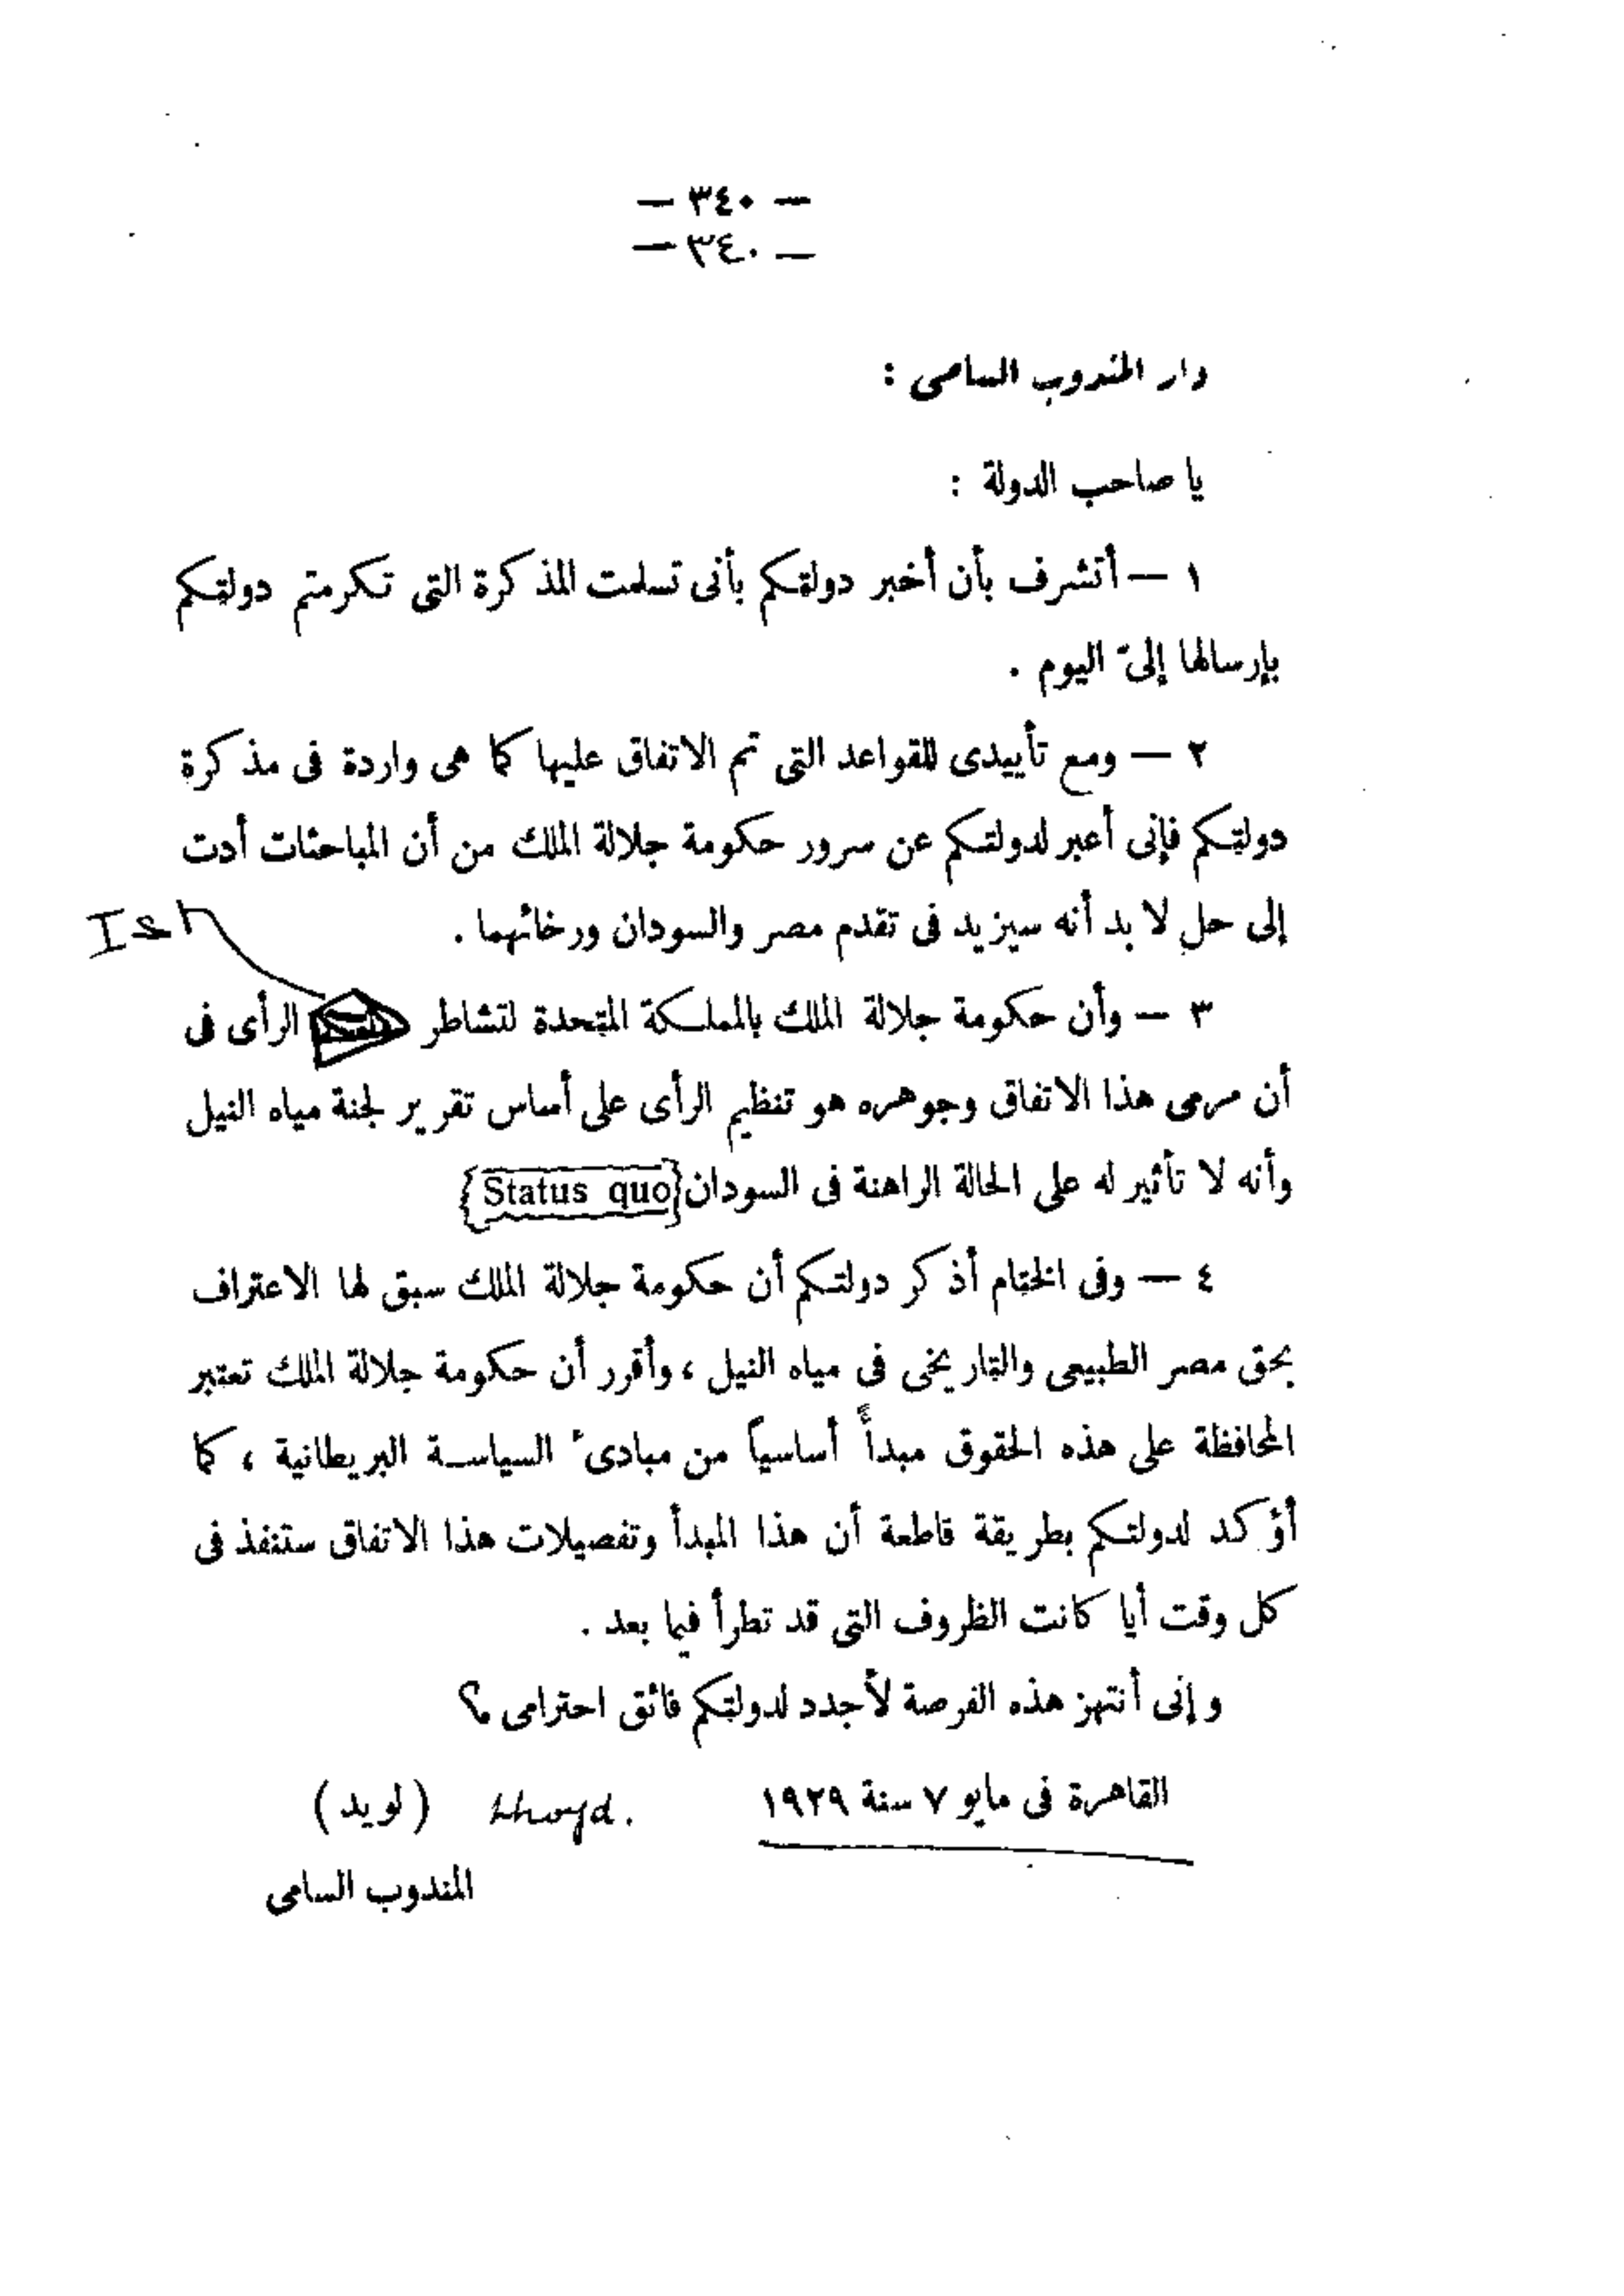 — ٣٤٠ —
— ٣٤٠ —
دار المندوب السامى :
يا صاحب الدولة :
١ — أتشرف بأن أخبر دولتكم بأنى تسلمت المذكرة التى تكرمتم دولتكم
بإرسالها إلىّ اليوم .
٢ — ومع تأييدى للقواعد التى تم الاتفاق عليها كما هى واردة فى مذكرة
دولتكم فإنى أعبر لدولتكم عن سرور حكومة جلالة الملك من أن المباحثات أدت
إلى حل لا بد أنه سيزيد فى تقدم مصر والسودان ورخائهما .
٣ — وأن حكومة جلالة الملك بالمملكة المتحدة لتشاطر الرأى فى
أن مرمى هذا الاتفاق وجوهره هو تنظيم الرأى على أساس تقرير لجنة مياه النيل
وأنه لا تأثير له على الحالة الراهنة فى السودان {Status quo}
٤ — وفى الختام أذكر دولتكم أن حكومة جلالة الملك سبق لها الاعتراف
بحق مصر الطبيعى والتاريخى فى مياه النيل ، وأقرر أن حكومة جلالة الملك تعتبر
المحافظة على هذه الحقوق مبدأً أساسياً من مبادئ السياسة البريطانية ، كما
أؤكد لدولتكم بطريقة قاطعة أن هذا المبدأ وتفصيلات هذا الاتفاق ستنفذ فى
كل وقت أيا كانت الظروف التى قد تطرأ فيما بعد .
وإنى أنتهز هذه الفرصة لأجدد لدولتكم فائق احترامى ؟
القاهرة فى مايو ٧ سنة ١٩٢٩ Lloyd. (لويد)
المندوب السامى